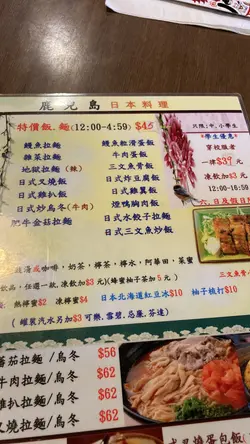 鹿兒島 日本料理
特價飯.麵(12:00-4:59) $45
鰻魚拉麵
雜菜拉麵
地獄拉麵(辣)
日式叉燒飯
日式雞扒飯
日式炒烏冬(牛肉)
肥牛金菇拉麵
鰻魚粒滑蛋飯
牛肉蛋飯
三文魚蓉飯
日式炸豆腐飯
日式雞翼飯
煙鴨胸肉飯
日式水餃子拉麵
日式三文魚炒飯
只限:中.小學生
*學生優惠*
穿校服者
一律$39
凍飲加$3元
12:00-16:59
六.日及假日
咖啡,奶茶,檸茶,檸水,阿華田,菜蜜
任選一款,凍飲加$3元)(蜂蜜柚子茶加5元)
熱檸蜜$2 凍檸蜜$4
日本北海道紅豆冰$10 柚子梳打$10
(罐裝汽水另加$3可樂.雪碧.忌廉.芬達)
三文魚
番茄拉麵/烏冬 $56
牛肉拉麵/烏冬 $62
雞扒拉麵/烏冬 $62
叉燒拉麵/烏冬 $62